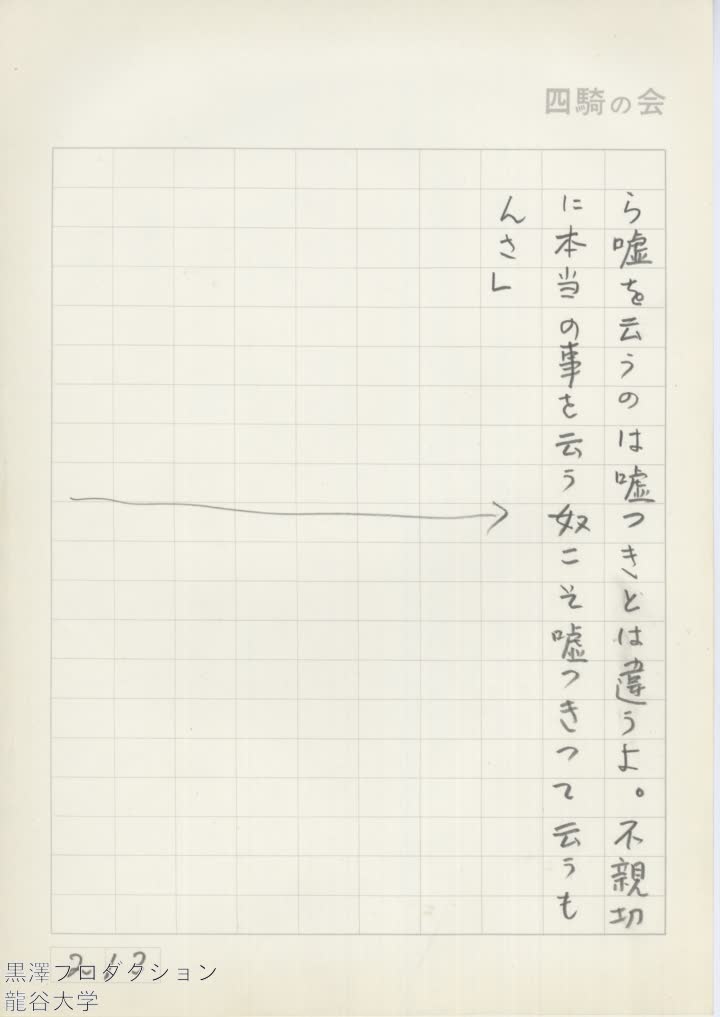 四騎の会
ら嘘を云うのは嘘つきとは違うよ。不親切
に本当の事を云う奴こそ嘘つきつて云うも
んさ」
213
黒澤プロダクション
龍谷大学